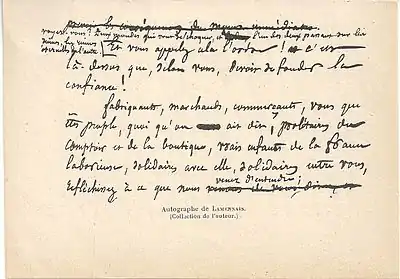 voyez-vous? Deux mondes qui vont se choquer, l'un des deux passera sur les
Et vous appelez cela l'ordre! et c'est
là-dessus que, selon vous, devroit se fonder la
confiance!
fabriquants, marchands, commerçants, vous que
êtes peuple, quoi qu'on ait dit, prolétaires du
comptoir et de la boutique, vrais enfants de la France
laborieuse, solidaires avec elle, solidaires entre vous,
venez d'entendre;
réfléchissez à ce que nous venons de vous dire
Autographe de LAMENNAIS.
(Collection de l'auteur.)